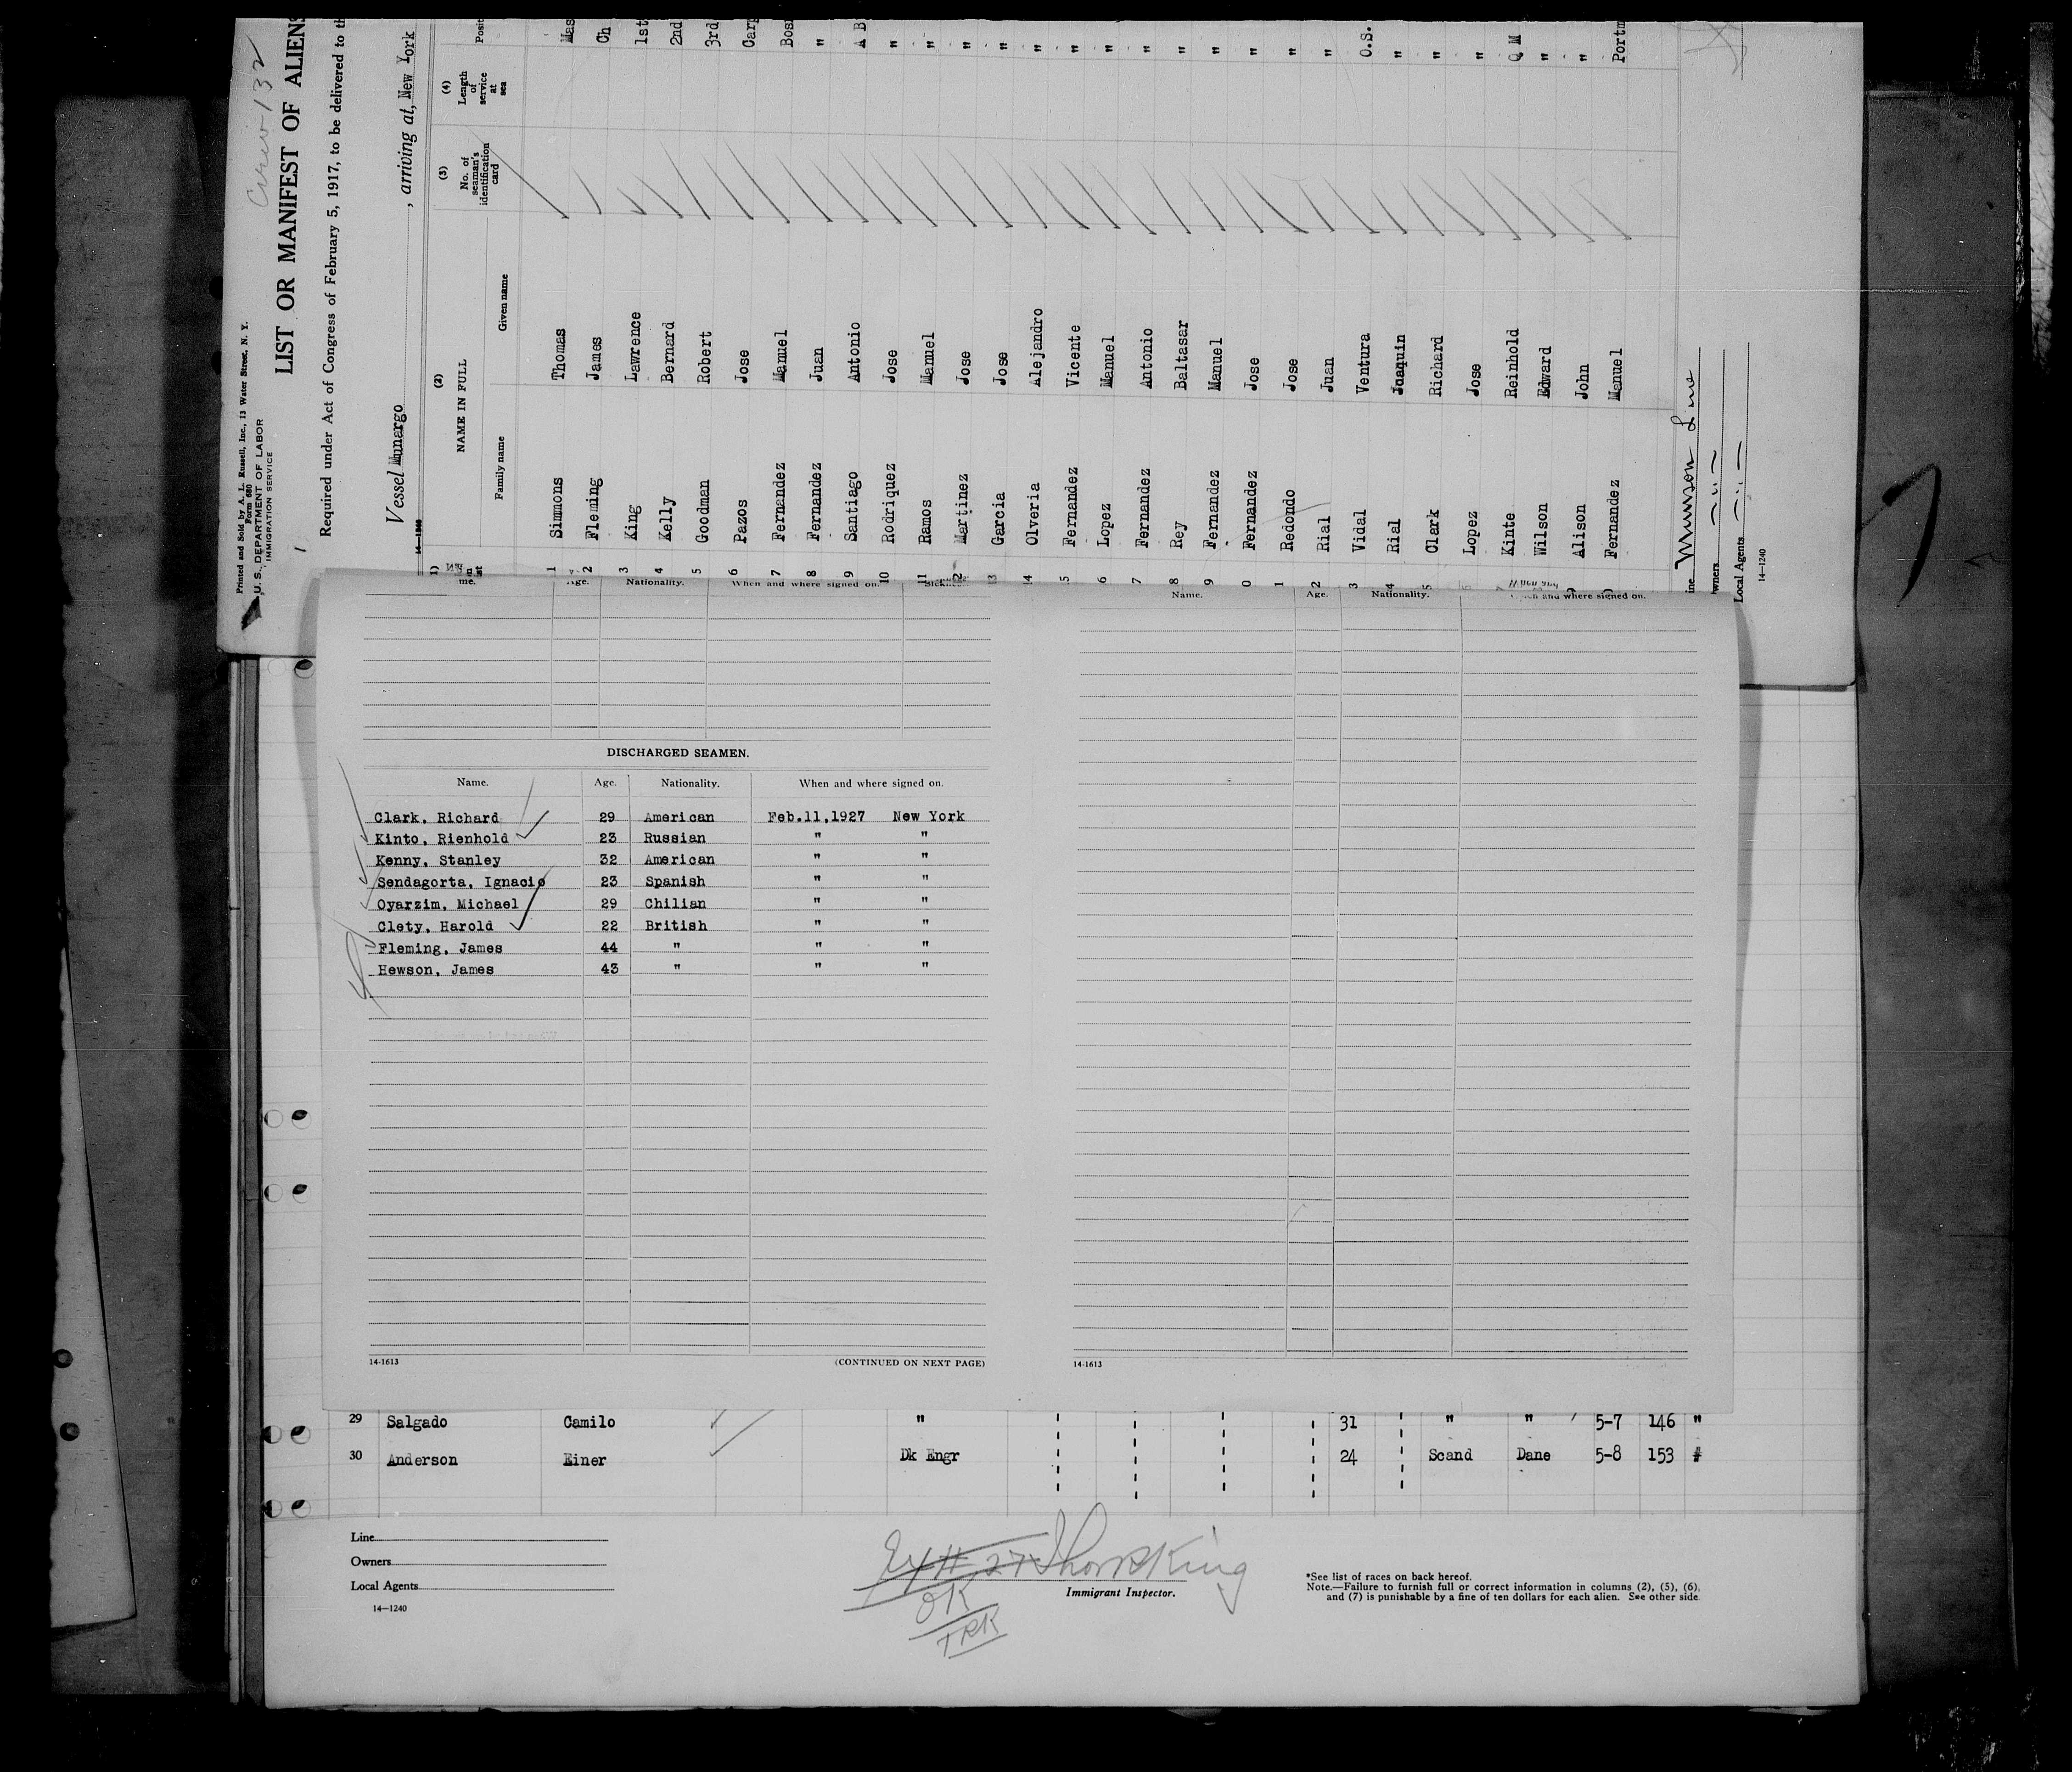 Crew 132
Printed and Sold by A. L. Russell, Inc., 13 Water Street, N. Y.
Form 680
U. S. DEPARTMENT OF LABOR
IMMIGRATION SERVICE
LIST OR MANIFEST OF ALIENS
Required under Act of Congress of February 5, 1917, to be delivered to th
Vessel Munargo , arriving at, New York
14-1240
(2) (3) (4)
NAME IN FULL No. of seaman's identification card Length of service at sea Posit
Family name Given name
1 Simmons Thomas Mas
2 Fleming James Ch
3 King Lawrence 1st
4 Kelly Bernard 2nd
5 Goodman Robert 3rd
6 Pazos Jose Carp
7 Fernandez Manuel Bos
8 Fernandez Juan "
9 Santiago Antonio A B
10 Rodriquez Jose "
11 Ramos Manuel "
12 Martinez Jose "
13 Garcia Jose "
14 Olveria Alejandro "
5 Fernandez Vicente "
6 Lopez Manuel "
7 Fernandez Antonio "
8 Rey Baltasar "
9 Fernandez Manuel "
0 Fernandez Jose "
1 Redondo Jose "
2 Rial Juan "
3 Vidal Ventura O.S.
4 Rial Joaquin "
5 Clark Richard "
Lopez Jose "
Kinte Reinhold Q M
Wilson Edward "
Alison John "
Fernandez Manuel Portm
ine Munson Line
wners " "
Local Agents " "
14-1240
me. Age. Nationality. When and where signed on.
Name. Age. Nationality. and where signed on.
DISCHARGED SEAMEN.
Name. Age. Nationality. When and where signed on.
Clark, Richard 29 American Feb.11,1927 New York
Kinto, Rienhold 23 Russian " "
Kenny, Stanley 32 American " "
Sendagorta, Ignacio 23 Spanish " "
Oyarzim, Michael 29 Chilian " "
Clety, Harold 22 British " "
Fleming, James 44 " " "
Hewson, James 43 " " "
14-1613 (CONTINUED ON NEXT PAGE)
14-1613
29 Salgado Camilo " 31 " " 5-7 146 "
30 Anderson Einer Dk Engr 24 Scand Dane 5-8 153 #
Line
Owners
Local Agents
14-1240
OK
TRK
Immigrant Inspector.
*See list of races on back hereof.
Note.—Failure to furnish full or correct information in columns (2), (5), (6),
and (7) is punishable by a fine of ten dollars for each alien. See other side.